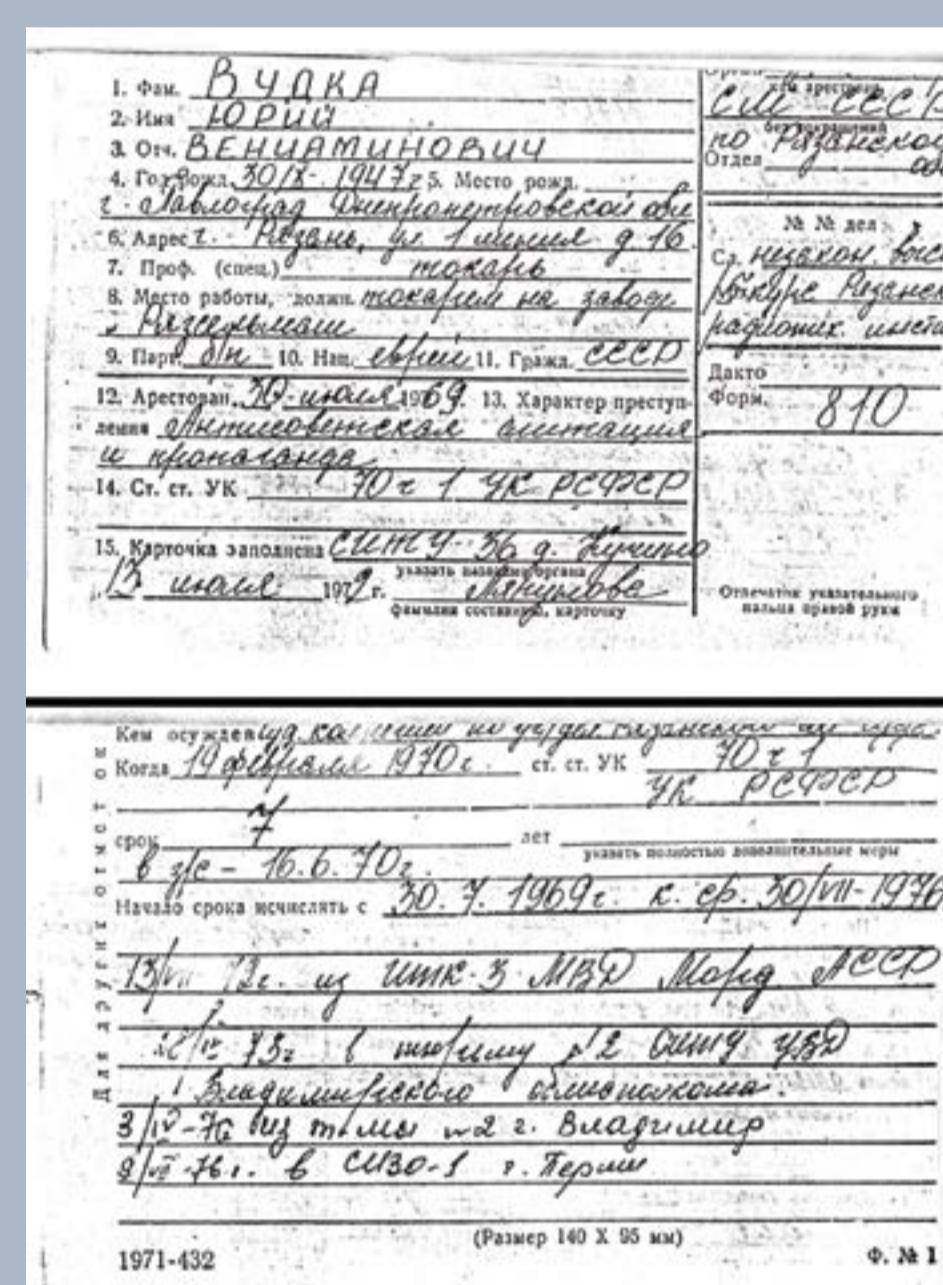 1. Фам. ВУДКА
2. Имя ЮРИЙ
3. Отч. ВЕНИАМИНОВИЧ
4. Год рожд. 30/X-1947г 5. Место рожд.
г. Павлоград Днепропетровской обл
6. Адрес г. Рязань, ул. 1 линия д 16
7. Проф. (спец.) токарь
8. Место работы, должн. токарем на заводе
Рязсельмаш
9. Парт. б/п 10. Нац. еврей 11. Гражд. СССР
12. Арестован 30 июля 1969. 13. Характер преступ-
ления Антисоветская агитация
и пропаганда
14. Ст. ст. УК 70 ч 1 УК РСФСР
15. Карточка заполнена СИТУ-36 д. Кучино
указать название органа
13 июля 1972 г.
фамилия составив. карточку
кем арестован
СМ СССР
без сокращений
по Рязанской
Отдел обл
№ № дел
Ср. незакон. высш
курс Рязанск
радиотех. инсти
Дакто
Форм. 810
Отпечаток указательного
пальца правой руки
Кем осужден суд.
Когда 19 февраля 1970г. ст. ст. УК 70 ч 1
УК РСФСР
срок 7 лет
указать полностью дополнительные меры
в з/с - 16.6.70г.
Начало срока исчислять с 30.7.1969г. к. ср. 30/VII-1976
Для других отметок
13/VII 72г. из ИТК-3 МВД Морд АССР
73г в тюрьму №2 УВД
Владимирского облисполкома.
3/IV-76 из №2 г. Владимир
-76г. в СИЗО-1 г. Перми
(Размер 140 X 95 мм)
1971-432
Ф. № 1